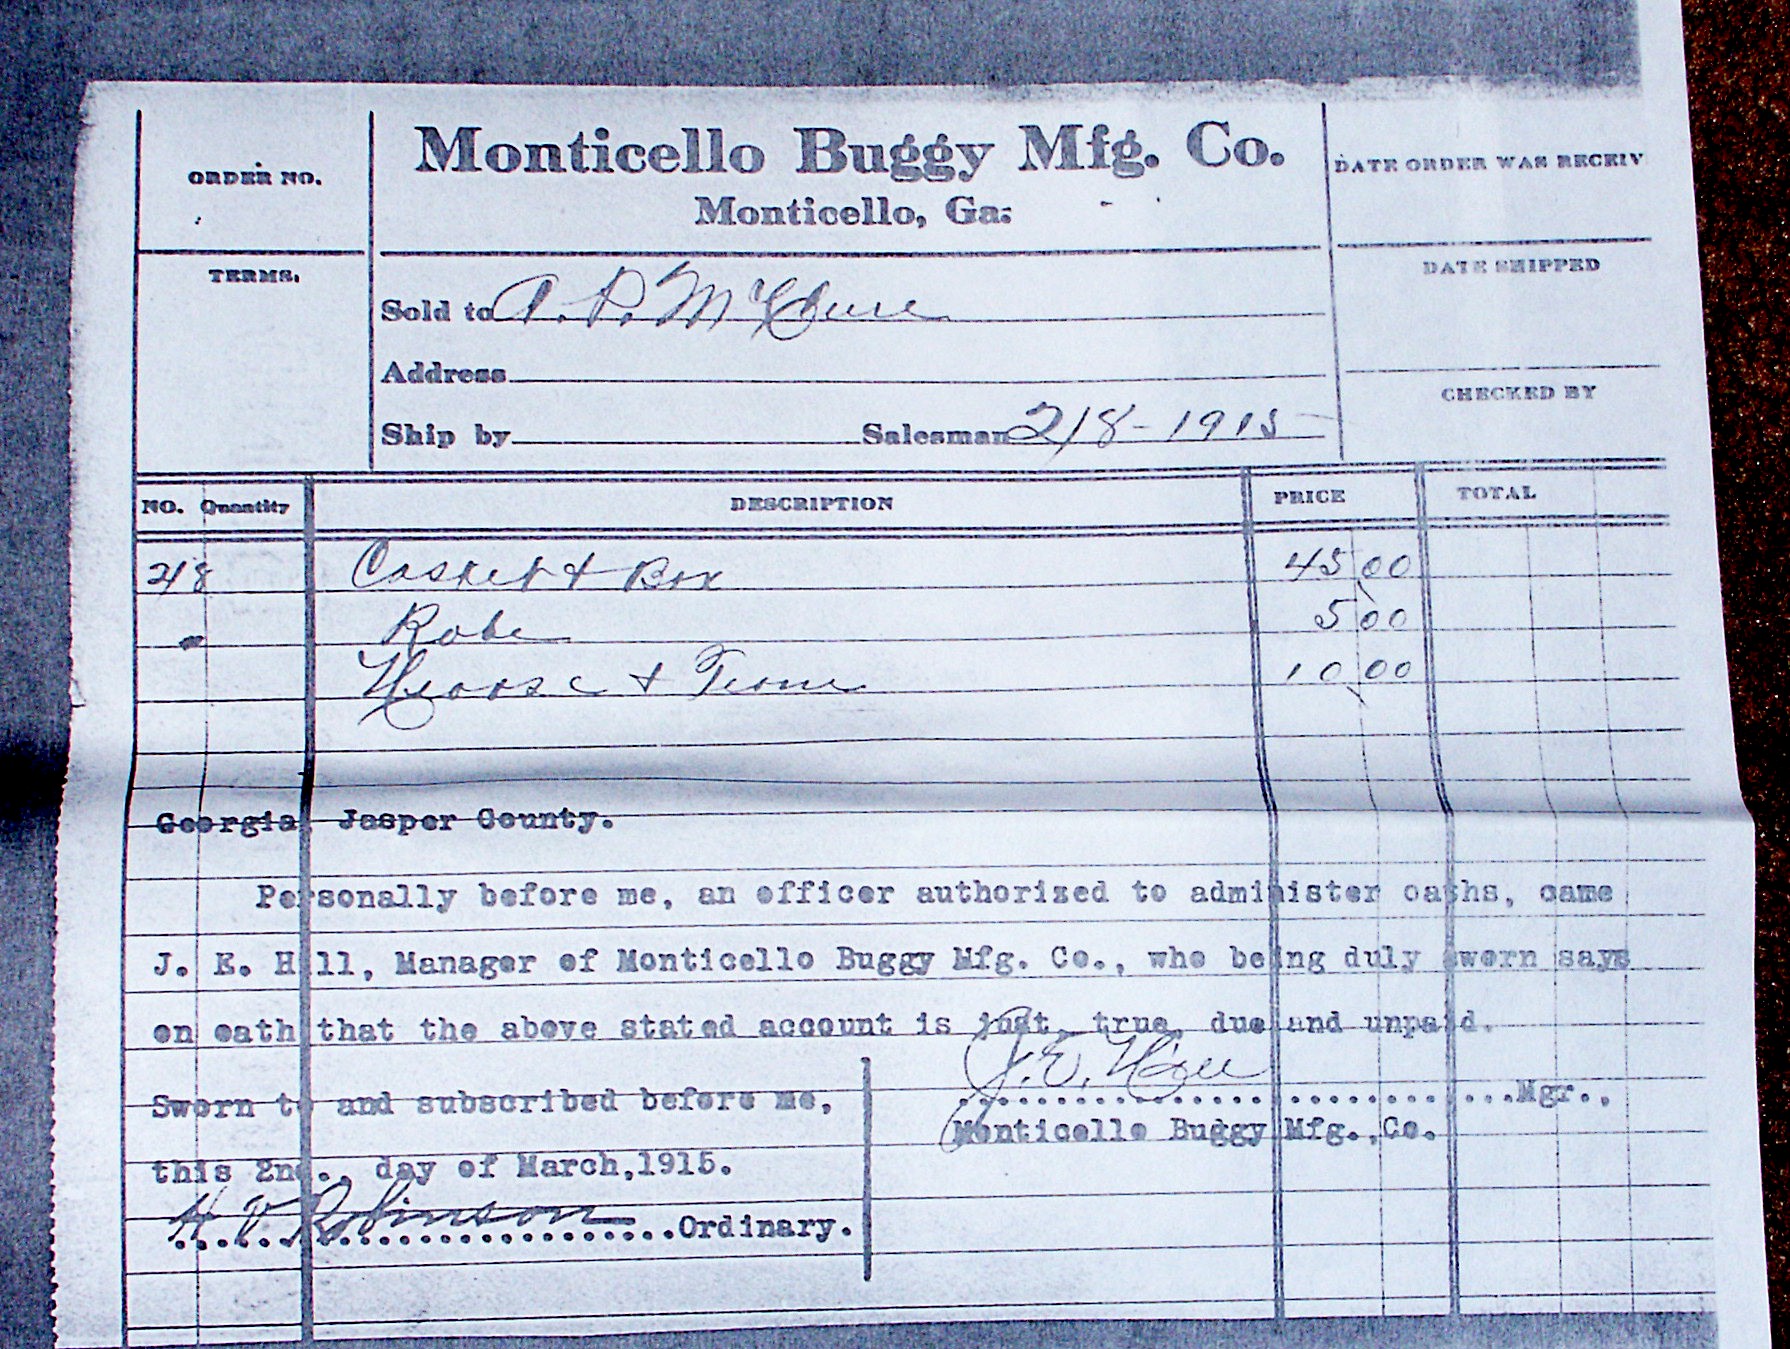 ORDER NO.
Monticello Buggy Mfg. Co.
Monticello, Ga.
DATE ORDER WAS RECEIV
TERMS.
DATE SHIPPED
Sold to McClure
Address
CHECKED BY
Ship by Salesman 2/8-1915
NO. Quantity DESCRIPTION PRICE TOTAL
2/8 Casket & Box 45 00
" Robe 5 00
Hearse & Team 10 00
Georgia, Jasper County.
Personally before me, an officer authorized to administer oaths, came
J. E. Hill, Manager of Monticello Buggy Mfg. Co., who being duly sworn says
on oath that the above stated account is just, true, due and unpaid.
J. E. Hill
Sworn to and subscribed before me, ..............................Mgr.,
Monticello Buggy Mfg.,Co.
this 2nd., day of March,1915.
H V Robinson
..............................Ordinary.